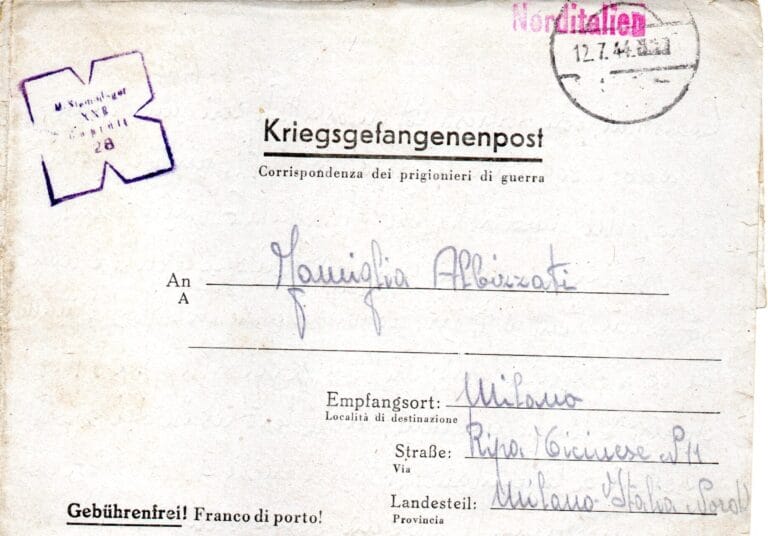 Norditalien
12.7.44
XXB
Geprüft
28
Kriegsgefangenenpost
Corrispondenza dei prigionieri di guerra
An Famiglia Albizzati
A
Empfangsort: Milano
Località di destinazione
Straße: Ripa Ticinese N 11
Via
Landesteil: Milano-Italia
Provincia
Gebührenfrei! Franco di porto!